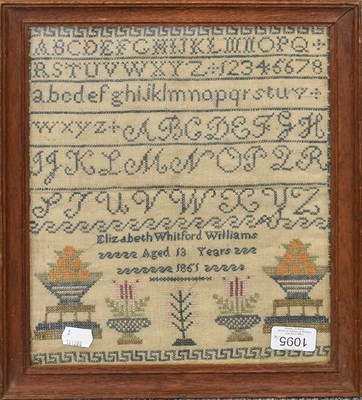 ABCDEFGHIJKLMNOPQ+
RSTUVWXYZ+12345678
abcdefghijklmnopqrstuv+
wxyz+ABCDEFGH
IJKLMNOPQR
STUVWXYZ
Elizabeth Whitford Williams
Aged 13 Years
1861
1095